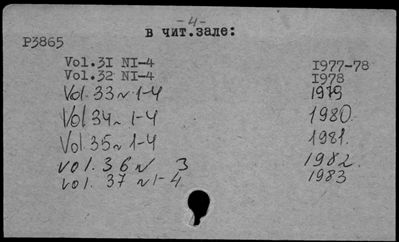 -4-
в чит.зале:
P3865
Vol.3I NI-4 I977-78
Vol.32 NI-4 I978
Vol. 33 N 1-4 1979
Vol 34 N 1-4 1980.
Vol. 35 N 1-4 1981.
vol. 36 N 3 1982.
vol. 37 N 1-4 1983